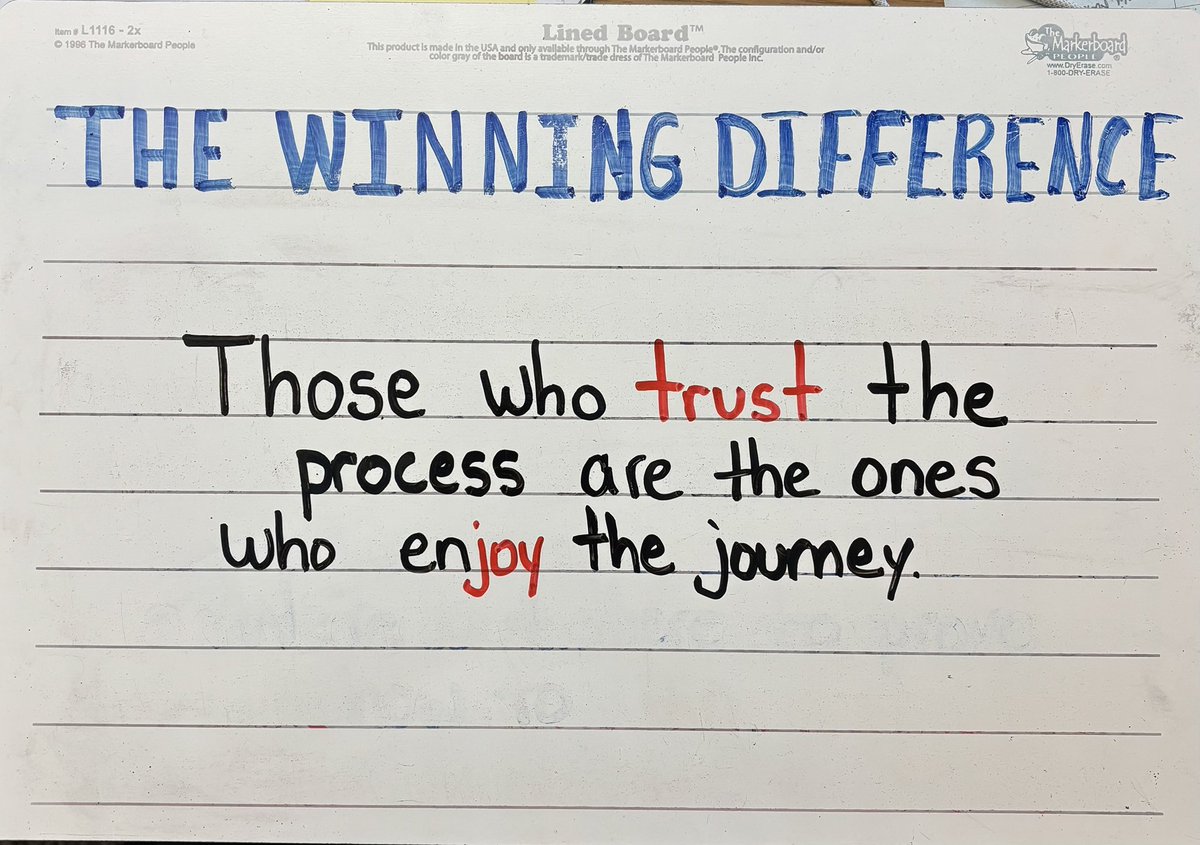 Item # L1116 - 2x
© 1996 The Markerboard People
Lined Board™
This product is made in the USA and only available through The Markerboard People®. The configuration and/or
color gray of the board is a trademark/trade dress of The Markerboard People Inc.
The
Markerboard
PEOPLE®
www.DryErase.com
1-800-DRY-ERASE
THE WINNING DIFFERENCE
Those who trust the
process are the ones
who enjoy the journey.